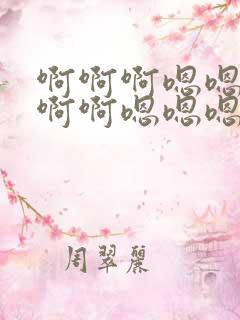 啊啊啊嗯嗯
啊啊嗯嗯嗯
周翠丽